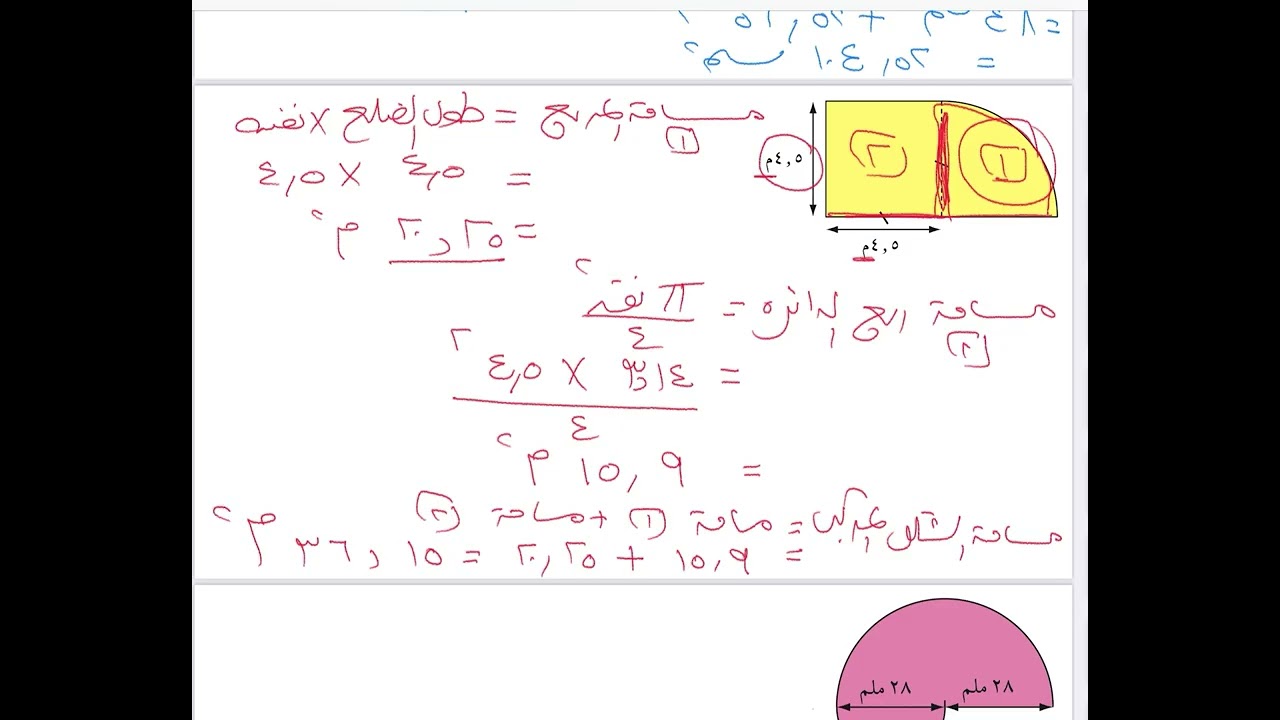 = ٨٤ سم٢ + ٢٥,١٥
= ٢٥,٤٠١ سم٢
مساحة المربع (١) = طول الضلع × نفسه
= ٤,٥ × ٤,٥
= ٢٠,٢٥ م٢
٤,٥م
(٢) (١)
٤,٥م
مساحة ربع الدائرة (٢) = π نق٢ / ٤
= ٣,١٤ × ٤,٥٢ / ٤
= ١٥,٩ م٢
مساحة الشكل المركب = مساحة (١) + مساحة (٢)
= ١٥,٩ + ٢٠,٢٥ = ٣٦,١٥ م٢
٢٨ ملم ٢٨ ملم